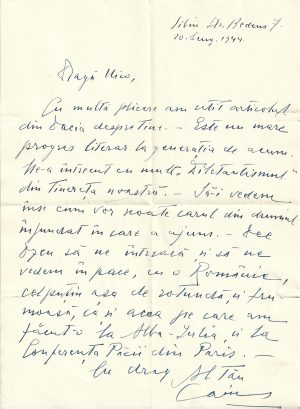 Sibiu Str. Bedeus 7.
20. Aug. 1944
Dragă Nicu,
Cu multă plăcere am citit articolul
din Dacia despre tine. – Este un mare
progres literar la generația de acum.
Ne-a întrecut cu mult „Diletantismul"
din tinerețea noastră. – Să-i vedem
însă cum vor scoate carul din drumul
înfundat în care a ajuns. –
să ne trăiască și să ne
vedem în pace, cu o Românie,
cel puțin așa de rotundă și fru-
moasă, ca și aceea pe care am
făcut-o la Alba-Iulia, și la
Conferența Păcii din Paris. –
Cu drag Al Tău